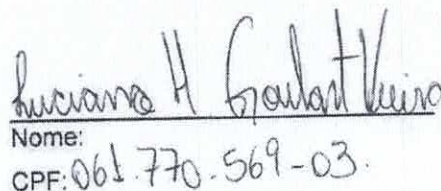 Luciana H Goulart Vieira
Nome:
CPF: 061.770.569-03.